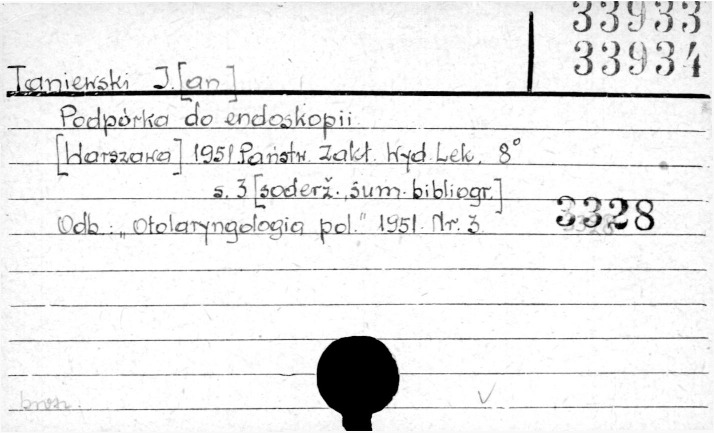 33933
33934
Taniewski J.[an]
Podpórka do endoskopii
[Warszawa] 1951. Państw. Zakł. Wyd. Lek. 8°
s. 3 [soderž., sum. bibliogr.]
Odb.: „Otolaryngologia pol." 1951. Nr. 3.
3328